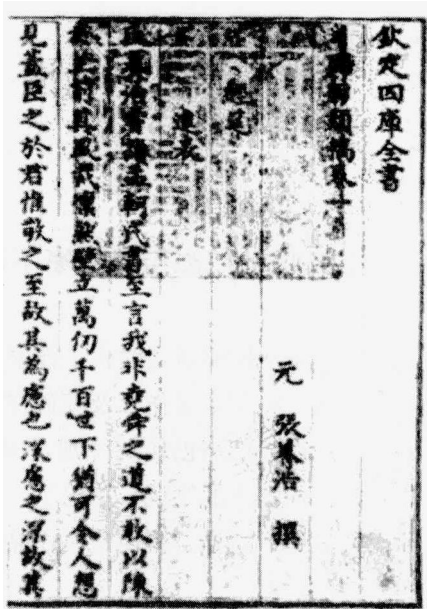 欽定四庫全書
類稿卷
元 張養浩 撰
進表
讀孟軻氏書至言我非堯舜之道不敢以陳
壁立萬仞千百世下猶可令人想
見蓋臣之於君惟敬之至故其為慮也深慮之深故其